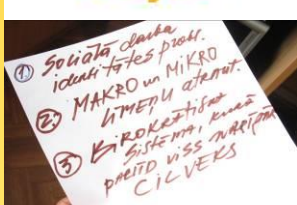 1. Sociālā darba
identitātes probl.
2. MAKRO un MIKRO
LĪMEŅU
3. BIROKRĀTISKA
SISTĒMA, KURĀ
VISS
CILVĒKS